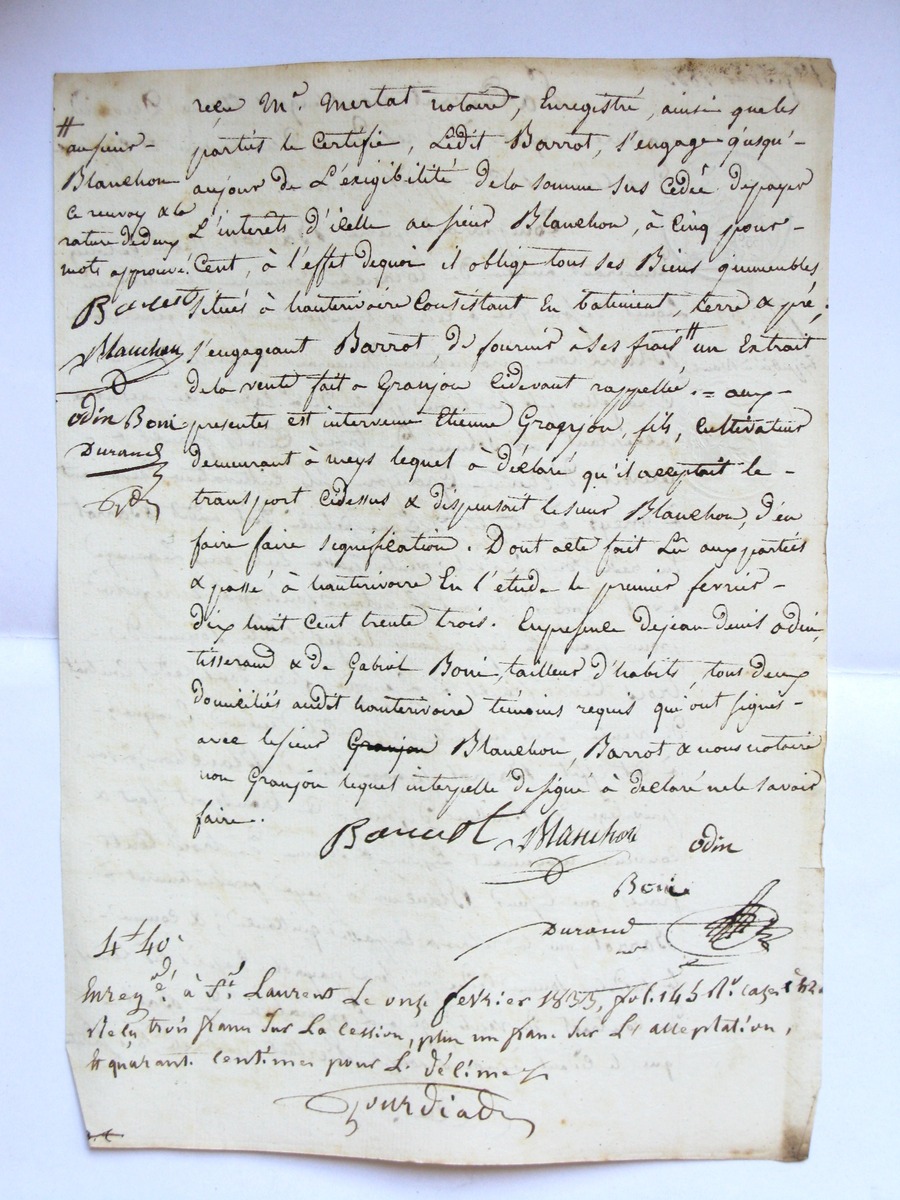 #
au sieur -
Blanchon
ce renvoy & la
rature de deux
mots approuvé.
Barrot
Blanchon
odin Boni
Durand
reçu Me. Mertat notaire, Enregistré, ainsi que les
partiés le Certifie, Ledit Barrot, s'engage jusqu'-
aujour de L'éxigibilité de la somme sus Cédéé de payer
L'interets d'icelle au sieur Blanchon, à Cinq pour -
Cent, à l'effet dequoi il oblige tous ses Biens immeubles
situés à hauterivoire Consistant En batiment, terre & pré,
s'engageant Barrot, de fournir à ses frais # un Extrait
de la vente fait à Granjon Cidevant rappellé .= aux -
presentes est intervenu Etienne Gragnjon, fils, Cultivateur
demeurant à meys lequel à déclaré qu'il acceptait le -
transport Cidessus & dispensait le sieur Blanchon, d'en
faire faire signification. Dont acte fait Lû aux partiés
& passé à hauterivoire En l'étude le premier fevrier -
dix huit Cent trente trois. En presence de jean denis odin,
tisserand & de Gabriel Boni, tailleur d'habits, tous deux
domiciliés audit hauterivoire témoins requis qui ont signés -
avec le sieur Granjon Blanchon, Barrot & nous notaire
non Granjon lequel interpellé de signé à declaré ne le savoir
faire.
Barrot Blanchon odin
Boni
Durand
4f 40c
Enregé. à St. Laurent Le onze fevrier 1833, fol. 145 Ro. cases
Reçu trois francs sur La cession, plus un franc sur L'acceptation,
& quarante centimes pour Le décime